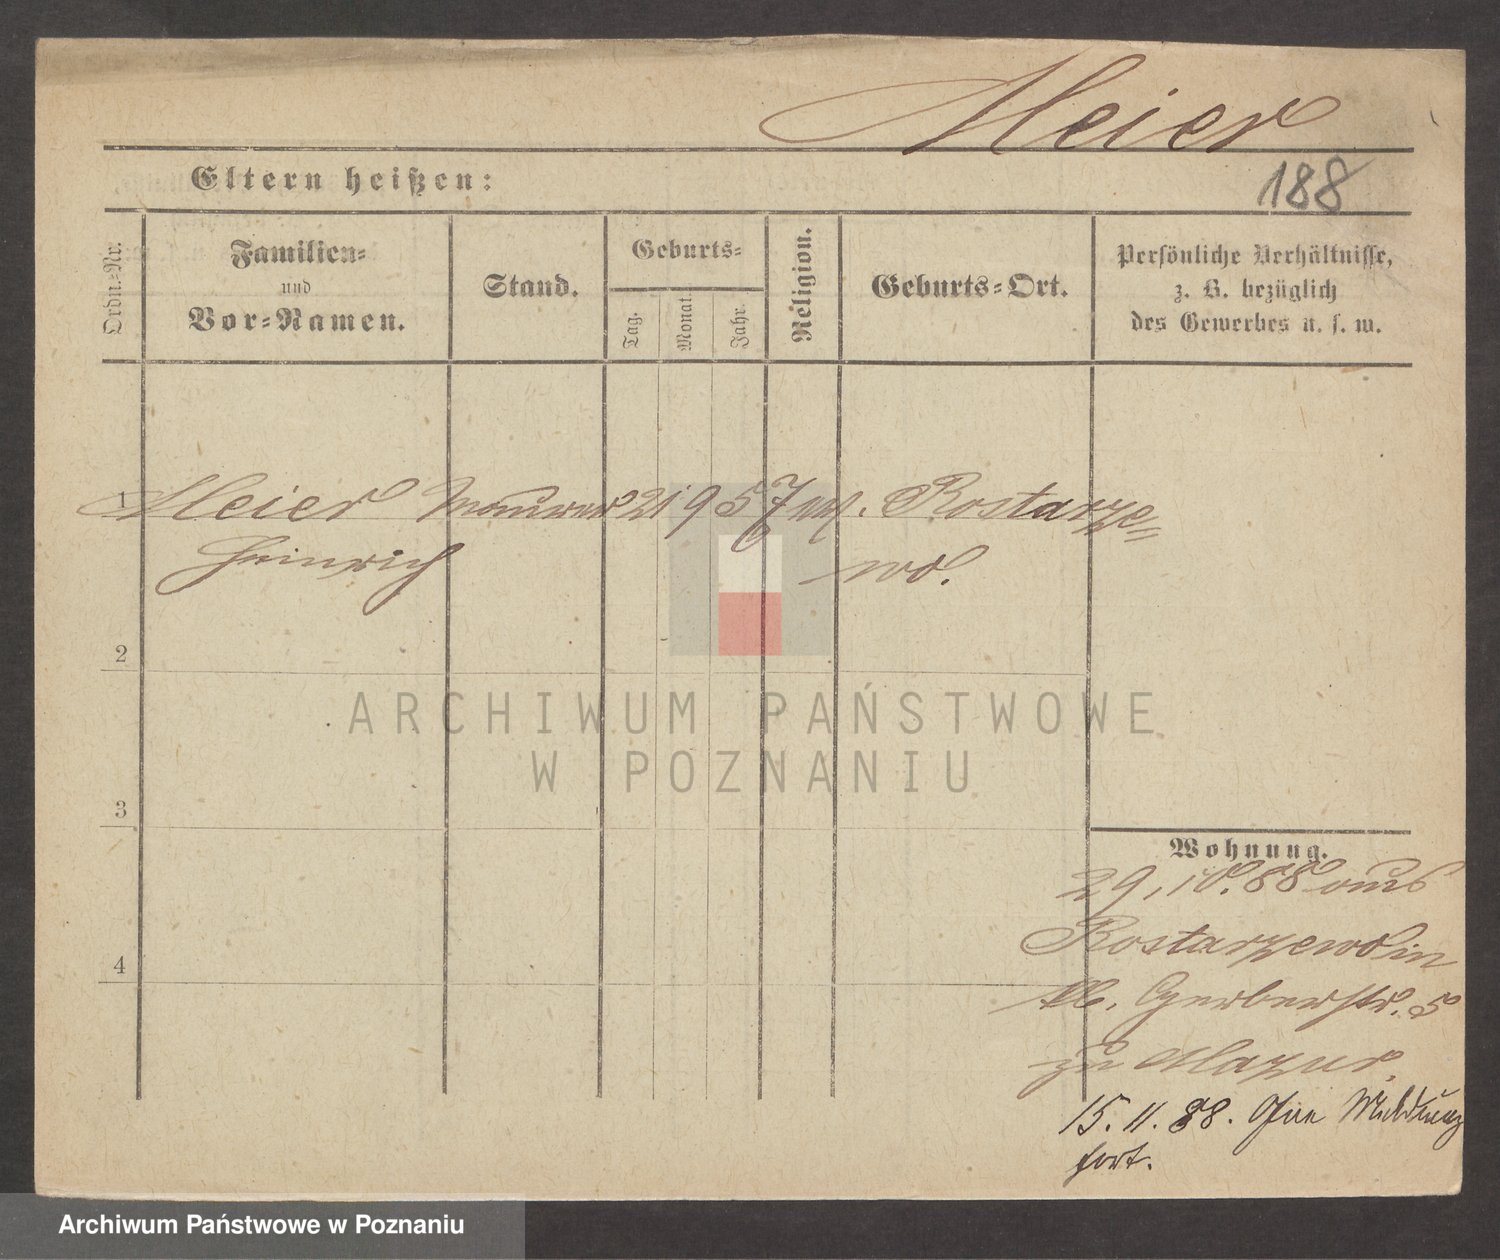 Meier
188
Eltern heißen:
Ordn.-Nr.
Familien-
und
Vor-Namen.
Stand.
Geburts-
Tag.
Monat.
Jahr.
Religion.
Geburts-Ort.
Persönliche Verhältnisse,
z. B. bezüglich
des Gewerbes u. s. w.
1 Meier Maurer 21 9 57 ev. Rostarze=
Heinrich wo.
2
3
4
ARCHIWUM PAŃSTWOWE
W POZNANIU
Wohnung.
29, 10. 88 aus
Rostarzewo in
Kl. Gerberstr. 5
zu Mazur.
15. 11. 88. Ohne Meldung
fort.
Archiwum Państwowe w Poznaniu